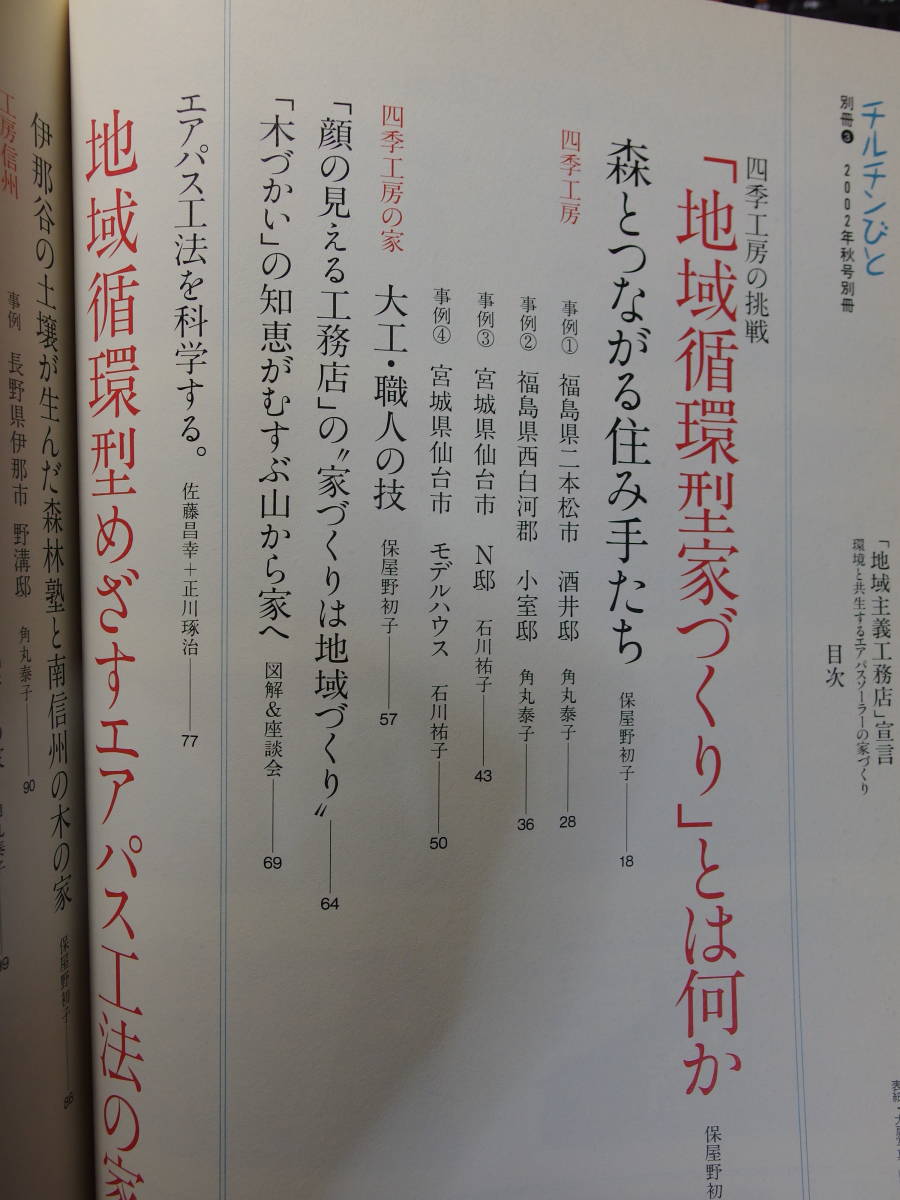 チルチンびと
別冊❸ 2002年秋号別冊
「地域主義工務店」宣言
環境と共生するエアパスソーラーの家づくり
目次
四季工房の挑戦
「地域循環型家づくり」とは何か
保屋野初
森とつながる住み手たち 保屋野初子 18
四季工房
事例① 福島県二本松市 酒井邸 角丸泰子 28
事例② 福島県西白河郡 小室邸 角丸泰子 36
事例③ 宮城県仙台市 N邸 石川祐子 43
事例④ 宮城県仙台市 モデルハウス 石川祐子 50
四季工房の家 大工・職人の技 保屋野初子 57
「顔の見える工務店」の〝家づくりは地域づくり〟 64
「木づかい」の知恵がむすぶ山から家へ 図解&座談会 69
エアパス工法を科学する。 佐藤昌幸+正川琢治 77
地域循環型めざすエアパス工法の家
伊那谷の土壌が生んだ森林塾と南信州の木の家 保屋野初子 86
工房信州
事例 長野県伊那市 野溝邸 角丸泰子 90